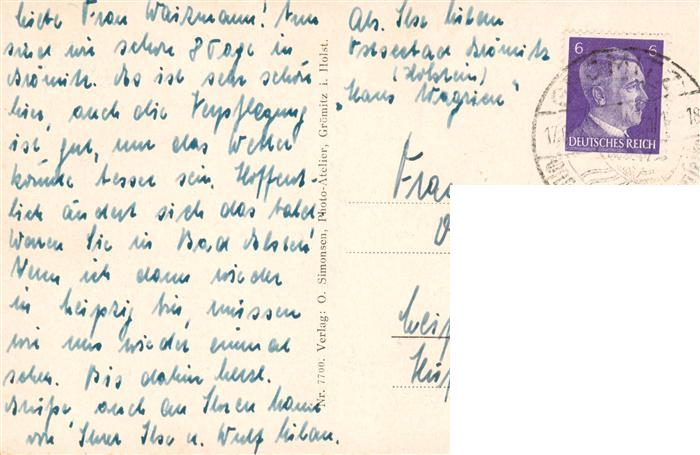 Liebe Frau Waizmann! Nun
sind wir schon 8 Tage in
Grömitz. Es ist sehr schön
hier, auch die Verpflegung
ist gut, nur das Wetter
könnte besser sein. Hoffent
lich ändert sich das bald.
Waren Sie in Bad Elster?
Wenn ich dann wieder
in Leipzig bin, müssen
wir uns wieder einmal
sehen. Bis dahin herzl.
Grüße, auch an Ihren Mann
von Ihrer Ilse u. Wulf Milan.
Nr. 7700. Verlag: O. Simonsen, Photo-Atelier, Grömitz i. Holst.
Abs. Ilse
Ostseebad Grömitz
(Holstein)
"Haus Wagrien"
6 6
DEUTSCHES REICH
GRÖMITZ
Frau
Leip